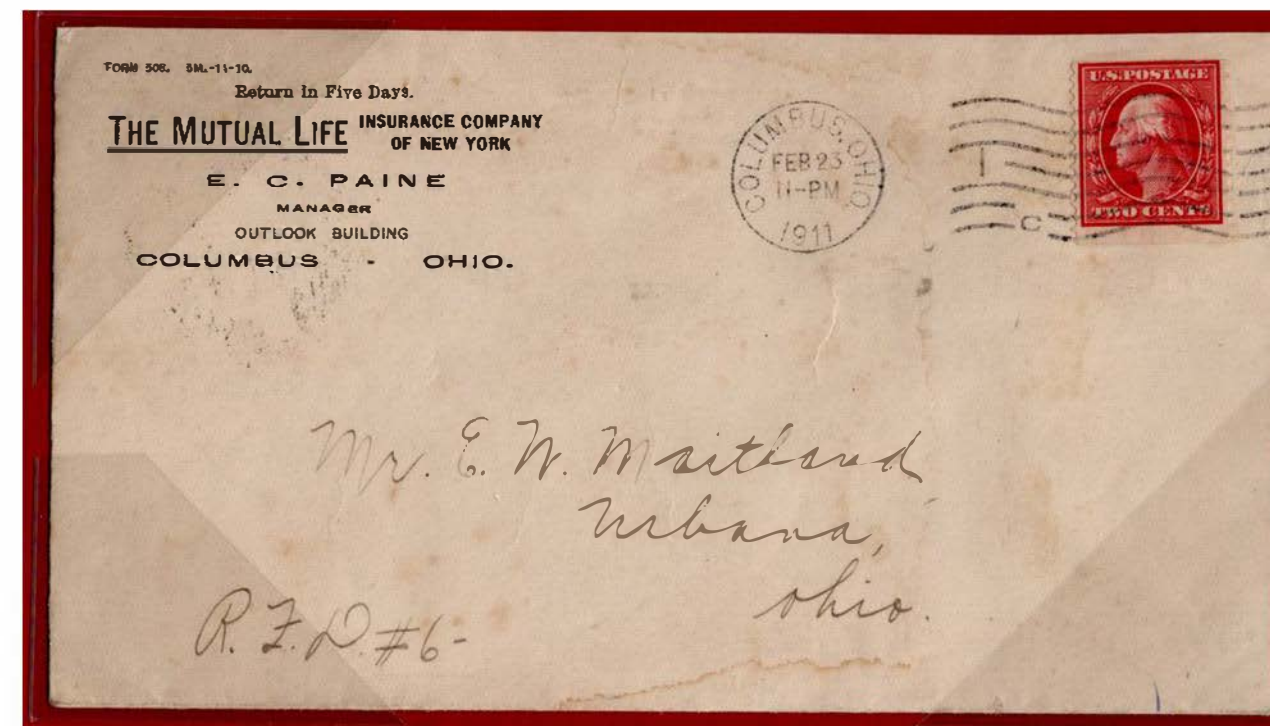 FORM 508. 5M.-11-10.
Return in Five Days.
THE MUTUAL LIFE INSURANCE COMPANY
OF NEW YORK
E. C. PAINE
MANAGER
OUTLOOK BUILDING
COLUMBUS - OHIO.
COLUMBUS, OHIO.
FEB 23
11-PM
1911
1
C
U.S. POSTAGE
TWO CENTS
Mr. E. W. Maitland
Urbana,
Ohio.
R. F. D. #6-